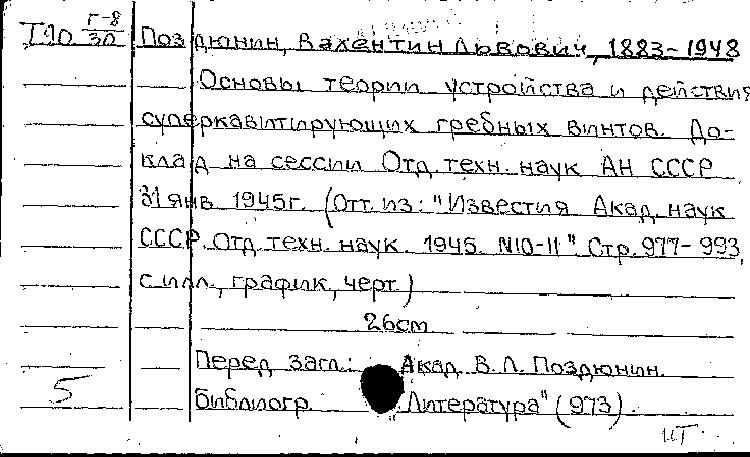 Т90 Г-8/30 Поздюнин, Валентин Львович, 1883-1948
Основы теории устройства и действия
суперкавитирующих гребных винтов. До-
клад на сессии Отд. техн. наук АН СССР
31 янв 1945г. (Отт. из: "Известия Акад. наук
СССР. Отд. техн. наук. 1945. N10-11" Стр. 977-993,
с илл., график, черт.)
26см
Перед загл.: Акад. В. Л. Поздюнин.
5 Библиогр. "Литература" (973).